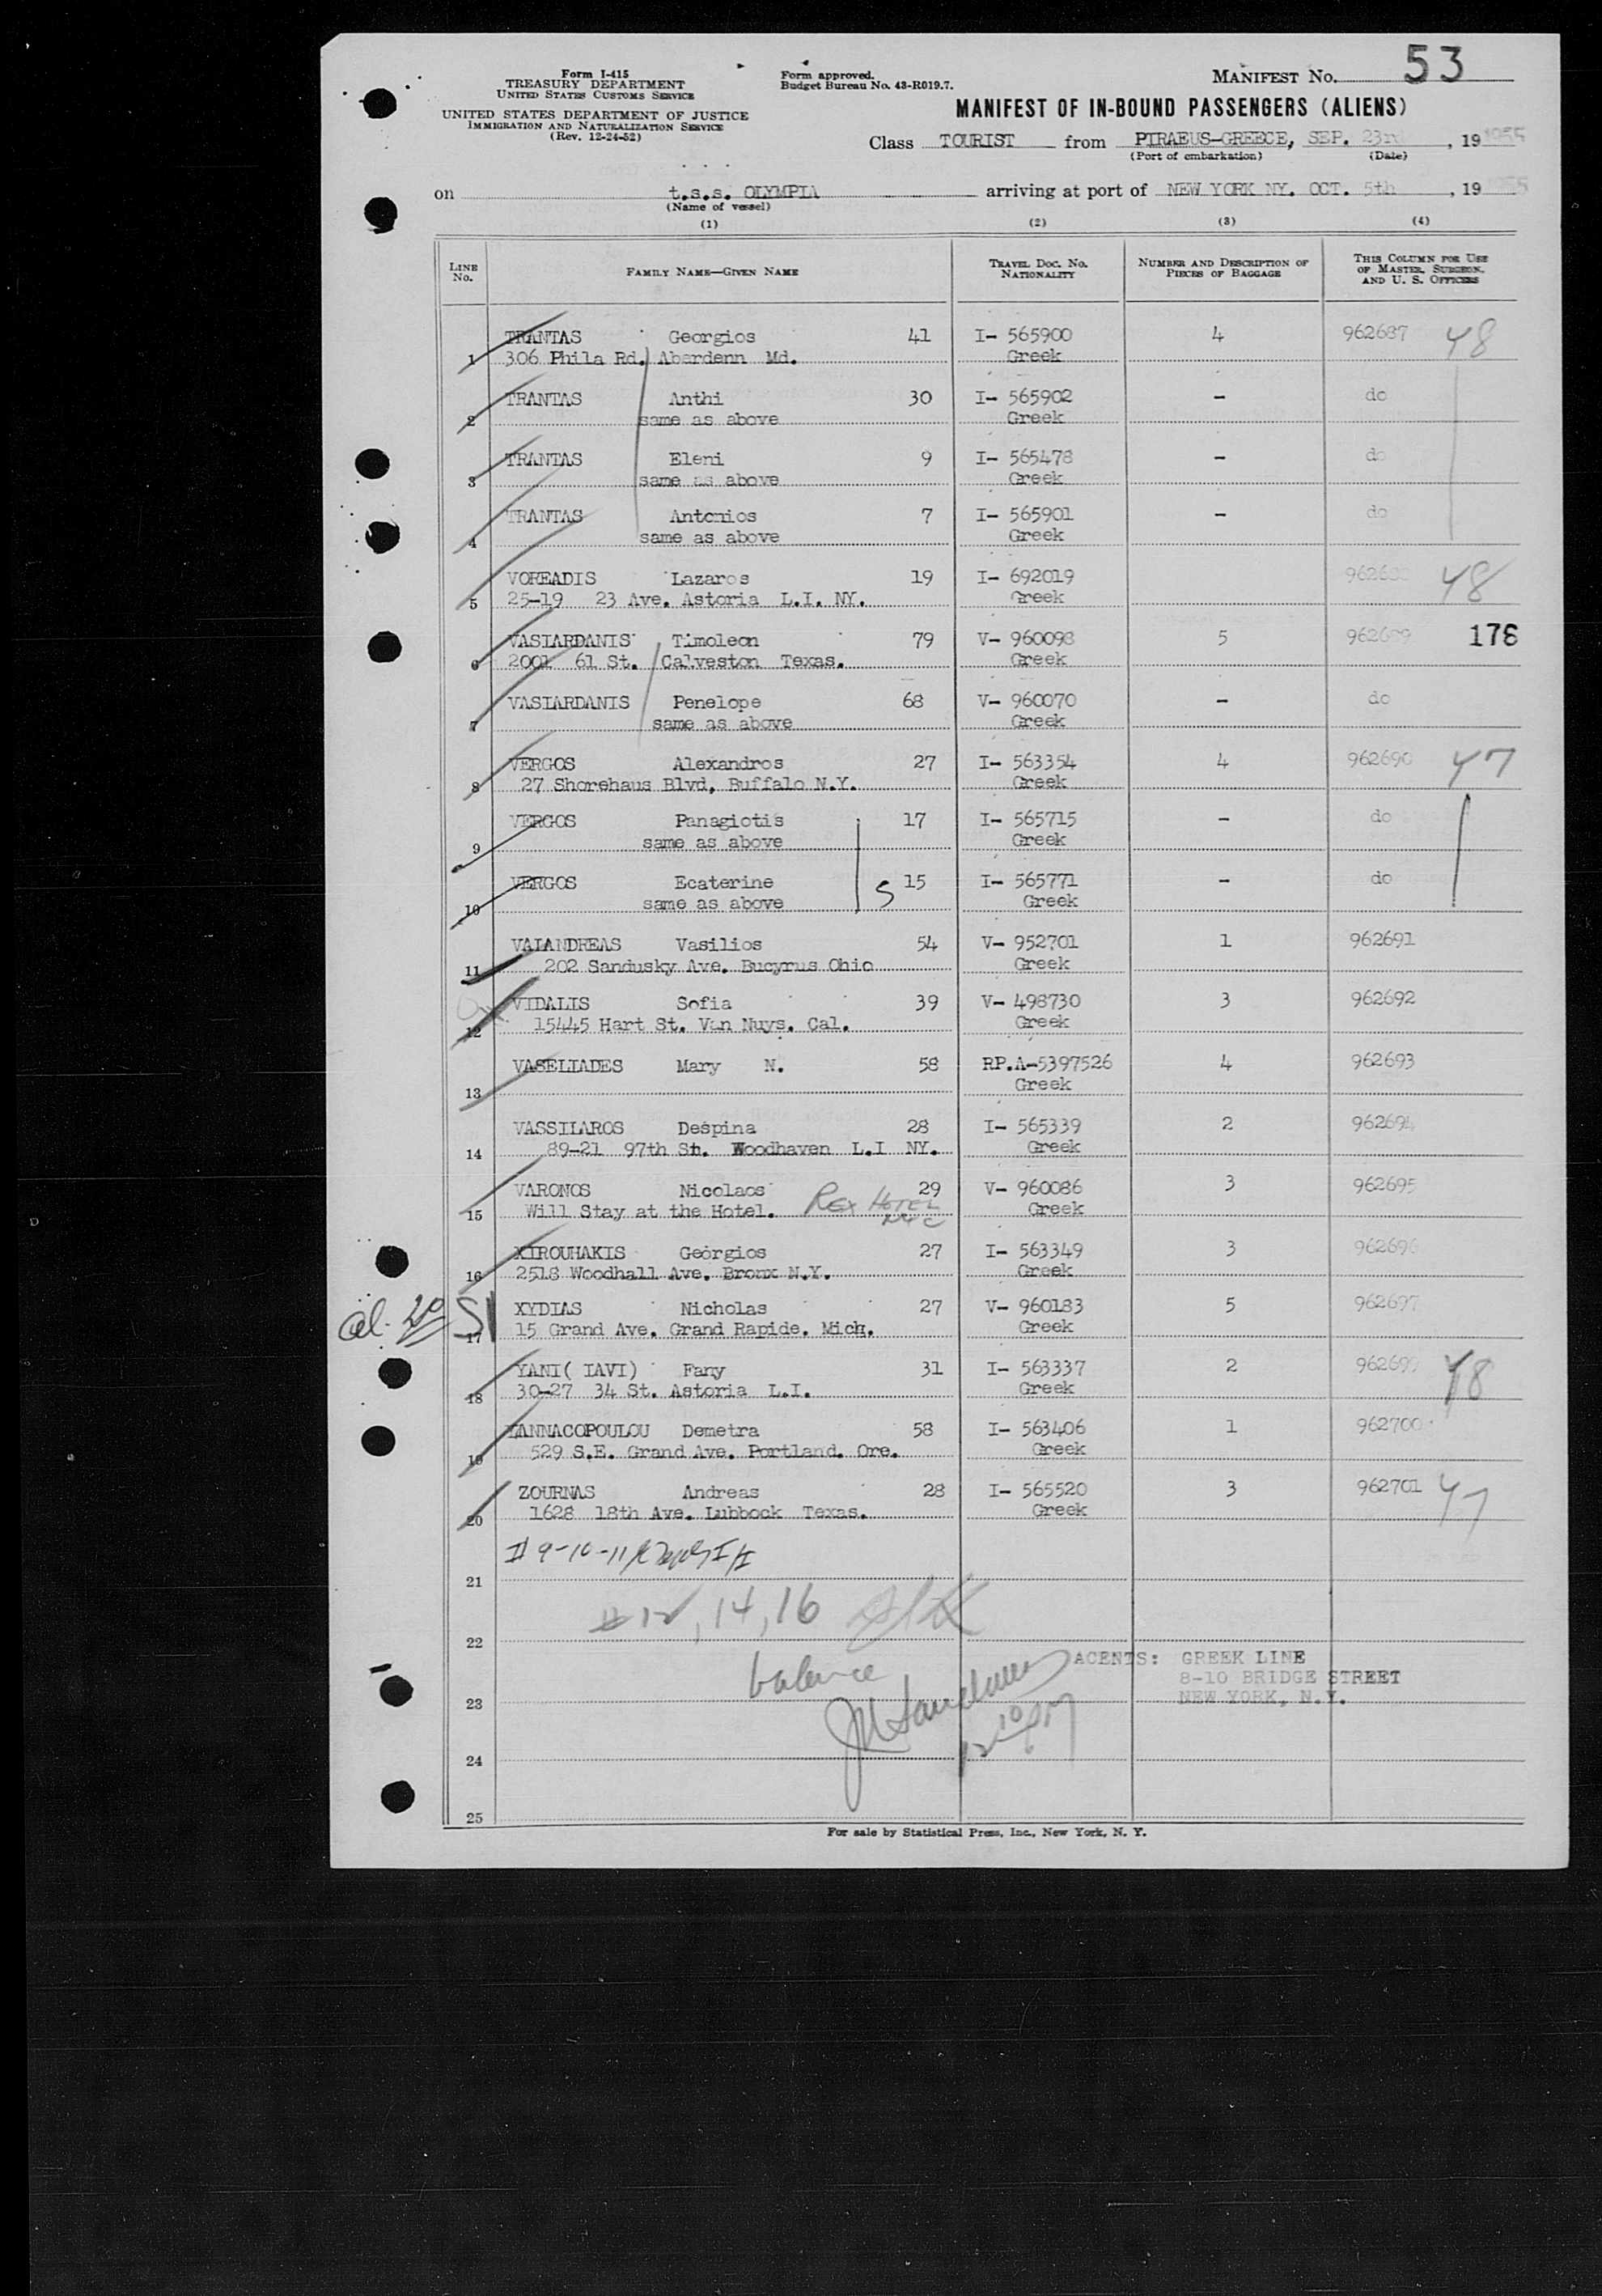 53
Form I-415
TREASURY DEPARTMENT
UNITED STATES CUSTOMS SERVICE
UNITED STATES DEPARTMENT OF JUSTICE
IMMIGRATION AND NATURALIZATION SERVICE
(Rev. 12-24-52)
Form approved.
Budget Bureau No. 43-R019.7.
MANIFEST No.
MANIFEST OF IN-BOUND PASSENGERS (ALIENS)
Class TOURIST from PIRAEUS-GREECE, SEP. 23rd, 19 1955
(Port of embarkation) (Date)
on t.s.s. OLYMPIA arriving at port of NEW YORK NY. OCT. 5th, 19 1955
(Name of vessel)
(1) (2) (3) (4)
LINE No. FAMILY NAME—GIVEN NAME TRAVEL DOC. No. NATIONALITY NUMBER AND DESCRIPTION OF PIECES OF BAGGAGE THIS COLUMN FOR USE OF MASTER, SURGEON, AND U. S. OFFICERS
TRANTAS Georgios 41 I- 565900 4 962687 48
1 306 Phila Rd. Aberdenn Md. Greek
TRANTAS Anthi 30 I- 565902 - do
2 same as above Greek
TRANTAS Eleni 9 I- 565478 - do
3 same as above Greek
TRANTAS Antonios 7 I- 565901 - do
4 same as above Greek
VOREADIS Lazaros 19 I- 692019 48
5 25-19 23 Ave. Astoria L.I. NY. Greek
VASIARDANIS Timoleon 79 V- 960098 5 962689 178
6 2001 61 St. Calveston Texas. Greek
VASIARDANIS Penelope 68 V- 960070 - do
7 same as above Greek
VERGOS Alexandros 27 I- 563354 4 962690 47
8 27 Shorehaus Blvd, Buffalo N.Y. Greek
VERGOS Panagiotis 17 I- 565715 - do
9 same as above Greek
VERGOS Ecaterine S 15 I- 565771 - do
10 same as above Greek
VALANDREAS Vasilios 54 V- 952701 1 962691
11 202 Sandusky Ave. Bucyrus Ohio Greek
VIDALIS Sofia 39 V- 498730 3 962692
12 15445 Hart St. Van Nuys. Cal. Greek
VASELIADES Mary N. 58 RP.A-5397526 4 962693
13 Greek
VASSILAROS Despina 28 I- 565339 2 962694
14 89-21 97th St. Woodhaven L.I NY. Greek
VARONOS Nicolaos 29 V- 960086 3 962695
15 Will Stay at the Hotel. REX HOTEL NYC Greek
XIROUHAKIS Georgios 27 I- 563349 3 962696
16 2518 Woodhall Ave. Bronx N.Y. Greek
XYDIAS Nicholas 27 V- 960183 5 962697
17 15 Grand Ave. Grand Rapide. Mich. Greek
YANI( IAVI) Fany 31 I- 563337 2 962699 48
18 30-27 34 St. Astoria L.I. Greek
YANNACOPOULOU Demetra 58 I- 563406 1 962700
19 529 S.E. Grand Ave. Portland. Ore. Greek
ZOURNAS Andreas 28 I- 565520 3 962701 47
20 1628 18th Ave. Lubbock Texas. Greek
9-10-11
21
12, 14, 16
22
balance
AGENTS: GREEK LINE
8-10 BRIDGE STREET
NEW YORK, N.Y.
23
24
25
For sale by Statistical Press, Inc., New York, N. Y.